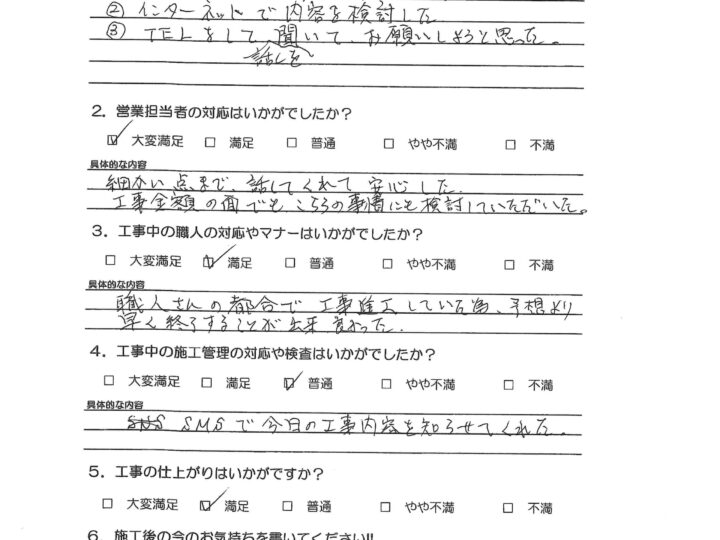 ② インターネットで内容を検討した
③ TELをして、聞いて、お願いしようと思った。
話しを
2. 営業担当者の対応はいかがでしたか?
☑ 大変満足 □ 満足 □ 普通 □ やや不満 □ 不満
具体的な内容
細かい点まで、話してくれて安心した。
工事金額の面でも、こちらの事情にも検討していただいた。
3. 工事中の職人の対応やマナーはいかがでしたか?
□ 大変満足 ☑ 満足 □ 普通 □ やや不満 □ 不満
具体的な内容
職人さんの都合で工事進工していた為、予想より
早く終了することが出来良かった。
4. 工事中の施工管理の対応や検査はいかがでしたか?
□ 大変満足 □ 満足 ☑ 普通 □ やや不満 □ 不満
具体的な内容
SMSで今日の工事内容を知らせてくれた。
5. 工事の仕上がりはいかがですか?
□ 大変満足 ☑ 満足 □ 普通 □ やや不満 □ 不満
6. 施工後の今のお気持ちを書いてください!!